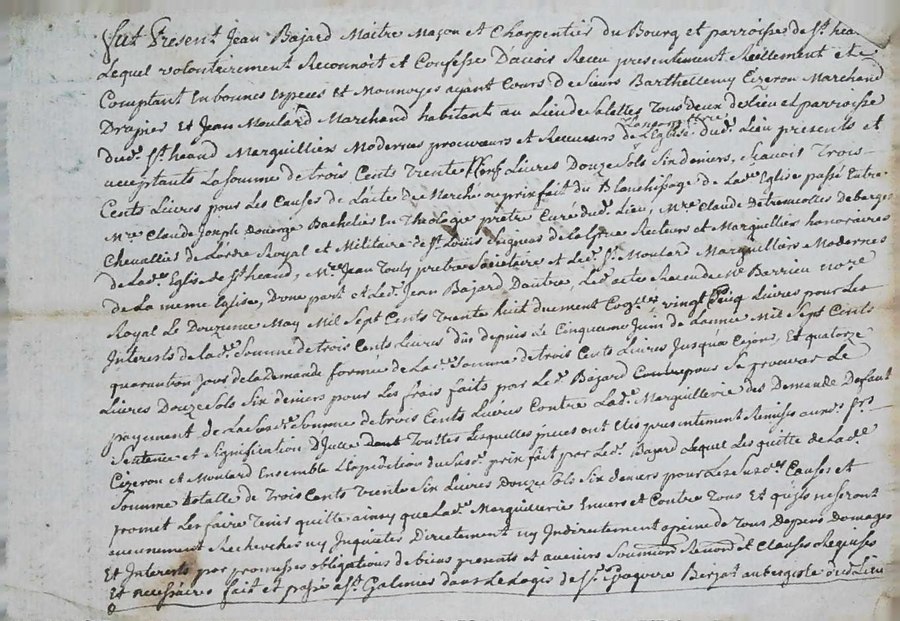 fut Present Jean Bajard Maitre Maçon et Charpentier du Bourg et parroisse de St. hea
Lequel volontairement Reconnoit et Confesse D'avoir Receu presentement Reellement et
Comptant En bonnes especes et Monnoyes ayant Cours de Sieurs Barthellemy Ezeron Marchand
Drapier et Jean Moulard Marchand habitants au Lieu de Tous deux de Lieu et parroisse
dud. St. heand Marguilliers Modernes procureurs et Receveurs de L'Eglise dud. Lieu presents et
acceptants La Somme de trois Cents trente Livres Douze Sols Six deniers, Scavoir Trois
Cents Livres pour Les Causes de L'acte de Marché ou prix fait du Blanchissage de Lad. Eglise passé Entre
Mre. Claude Joseph Bachelier En Theologie pretre Curé dud. Lieu, Mre. Claude
Chevallier de L'ordre Royal et Militaire de St. Louis Recteurs et Marguilliers honoraires
de Lad. Eglise de St. heand, Mre. Jean pretre Societaire et Led. Sr. Moulard Marguilliers Modernes
de La meme Eglise, D'une part et Led. Jean Bajard D'autre, Led. acte Receu de Me. Barrieu nore.
Royal Le Douzieme May Mil Sept Cents trente huit duement vingt Cinq Livres pour Les
Interests de Lad. Somme de trois Cents Livres dûs depuis Le Cinquieme Juin de L'année Mil Sept Cents
quarante jour de La demande formée de Lad. Somme de trois Cents Livres Jusqua Et quatorze
Livres Douze Sols Six deniers pour Les frais faits par Led. Bajard pour Se procurer Le
payement de Lad. Somme de trois Cents Livres Contre Lad. Marguillerie des Demande Defaut
Sentence et Signification D'Icelle Toutes Lesquelles pieces ont Etes presentement Remises auxd. Srs.
Ezeron et Moulard Ensemble L'Expedition du Susd. prix fait par Led. Bajard Lequel Les quitte de Lad.
Somme totalle de Trois Cents trente Livres Douze Sols Six deniers pour Les Susd. Causes et
promet Les faire Tenir quitte ainsy que Lad. Marguillerie Envers et Contre Tous Et qu'ils ne Seront
aucunement Recherches ny Inquietés Directement ny Indirectement a peine de Tous Depens Domages
Et Interests par promesses obligations de biens presents et avenirs Soumissions et Clauses Requises
Et necessaires fait et passé a St. Galmier dans Le Logis de Sr. aubergiste dud. Lieu